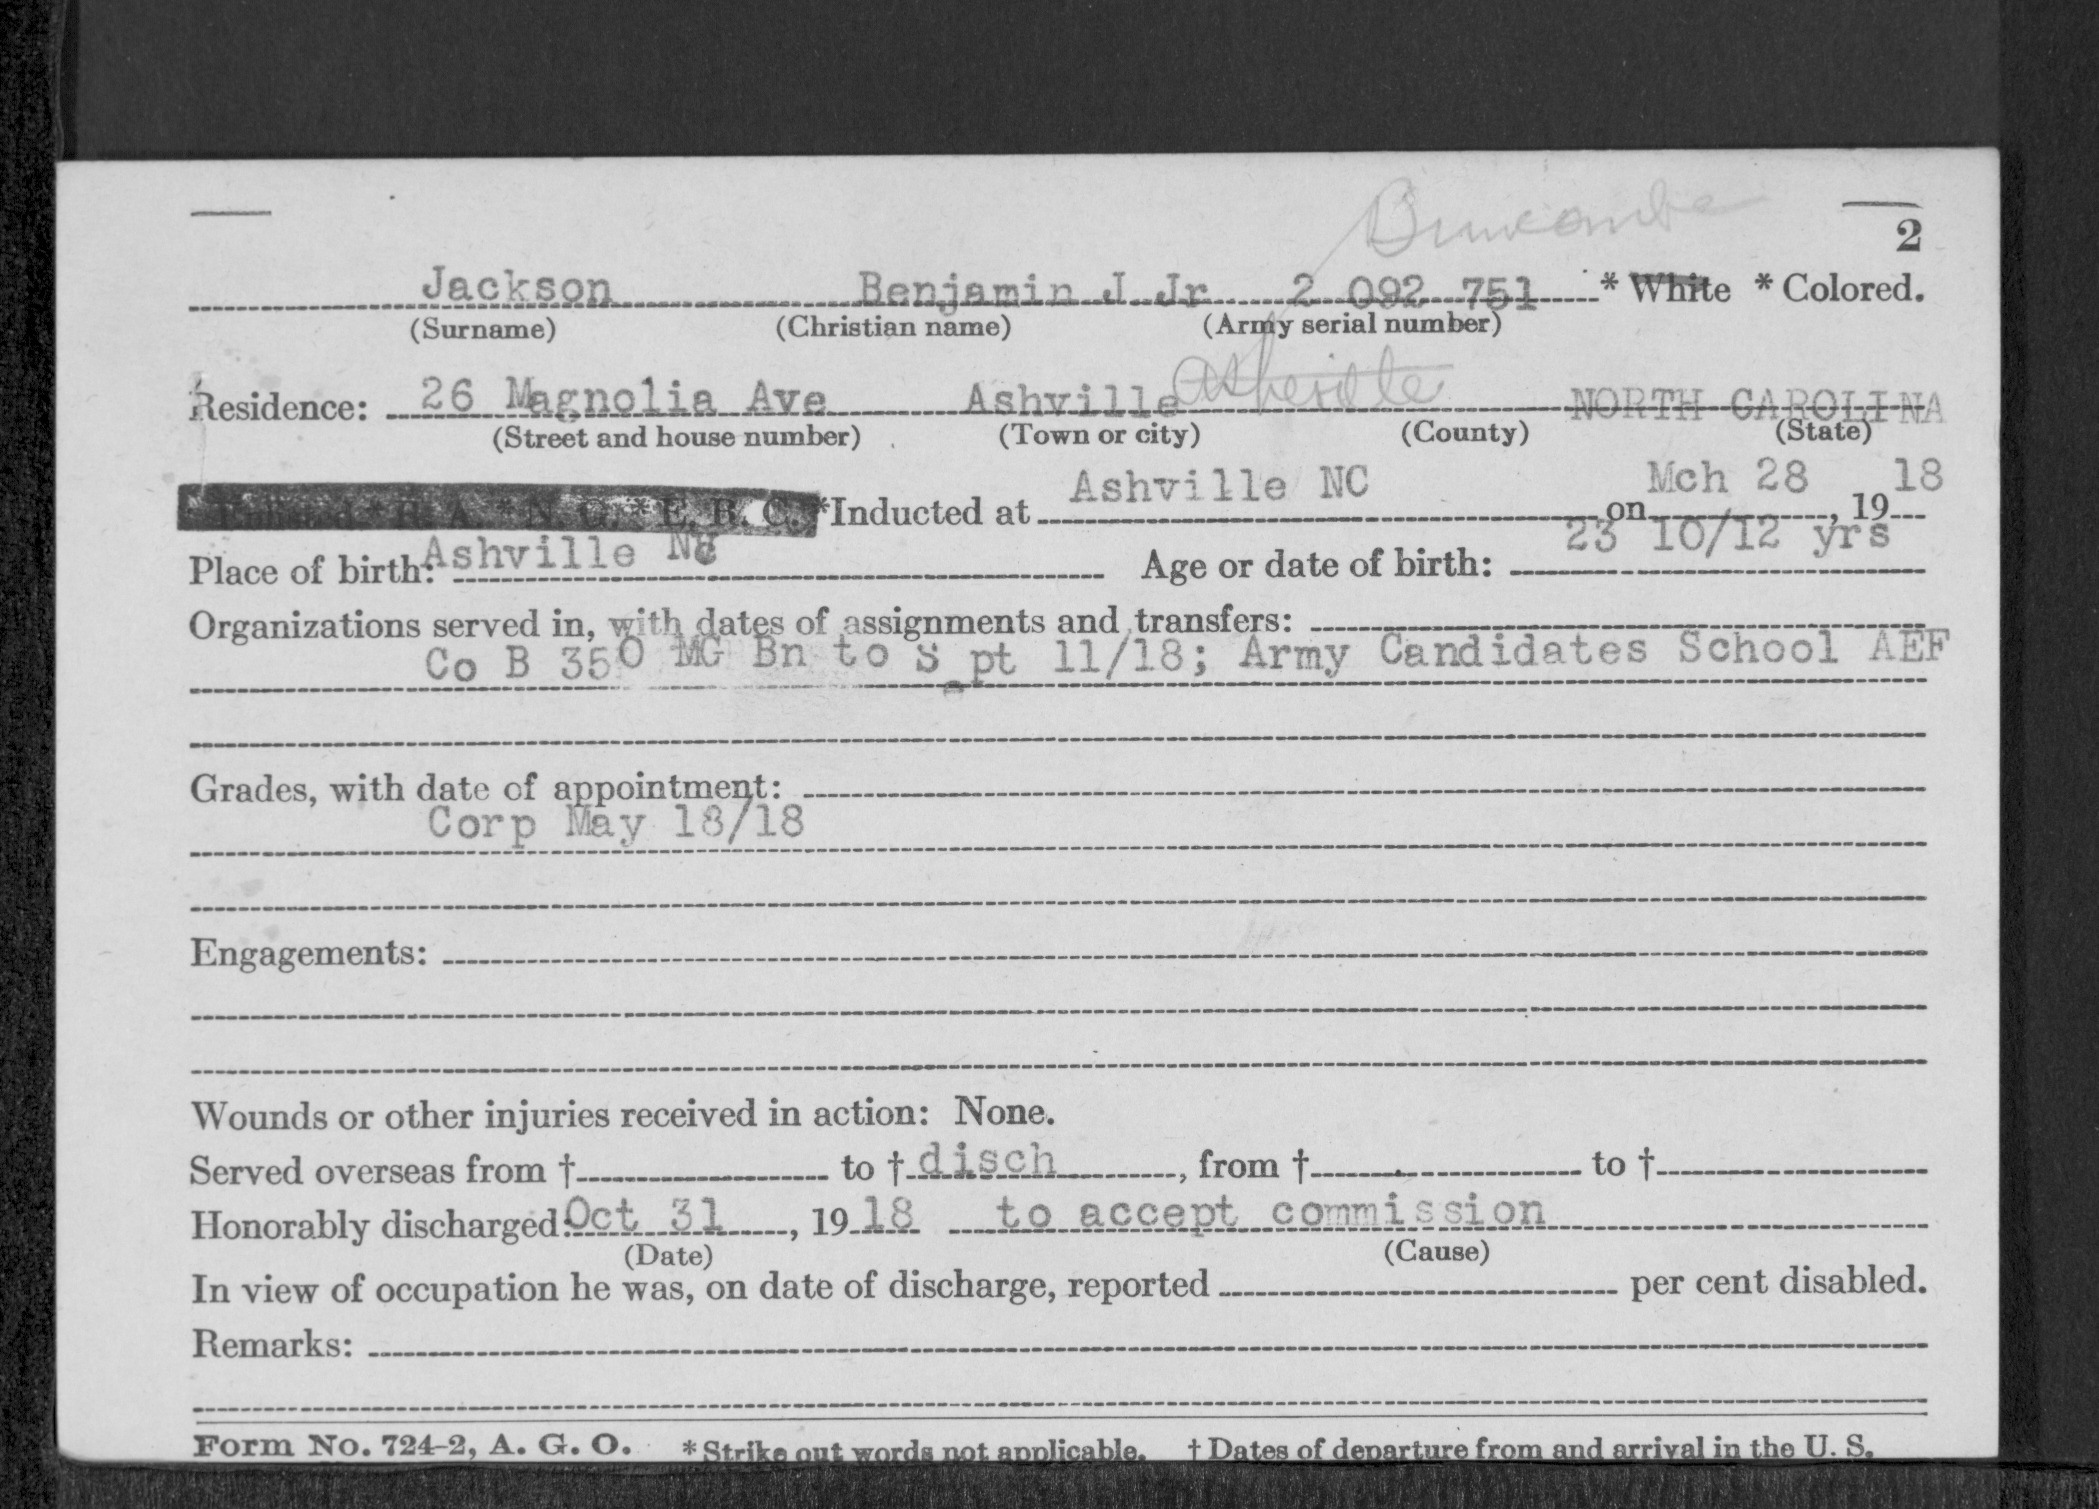 Buncombe
2
Jackson Benjamin J Jr 2 092 751 * White * Colored.
(Surname) (Christian name) (Army serial number)
Residence: 26 Magnolia Ave Ashville Asheville NORTH CAROLINA
(Street and house number) (Town or city) (County) (State)
Enlisted * R. A. * N. G. * E. R. C. *Inducted at Ashville NC on Mch 28, 1918
Place of birth: Ashville NC Age or date of birth: 23 10/12 yrs
Organizations served in, with dates of assignments and transfers:
Co B 350 MG Bn to Sept 11/18; Army Candidates School AEF
Grades, with date of appointment:
Corp May 18/18
Engagements:
Wounds or other injuries received in action: None.
Served overseas from † to † disch, from † to †
Honorably discharged: Oct 31, 1918 to accept commission
(Date) (Cause)
In view of occupation he was, on date of discharge, reported per cent disabled.
Remarks:
Form No. 724-2, A. G. O. * Strike out words not applicable. † Dates of departure from and arrival in the U. S.